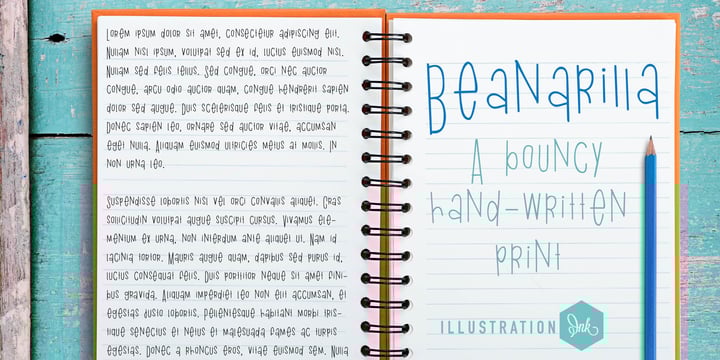 Lorem ipsum dolor sit amet, consectetur adipiscing elit.
Nullam nisl ipsum, volutpat sed ex id, luctus euismod nisl.
Nullam sed felis tellus. Sed congue, orci nec auctor
congue, arcu odio auctor quam, congue hendrerit sapien
dolor sed augue. Duis scelerisque felis et tristique porta.
Donec sapien leo, ornare sed auctor vitae, accumsan
eget nulla. Aliquam euismod ultricies metus at mollis. In
non urna leo.
Suspendisse lobortis nisl vel orci convallis aliquet. Cras
sollicitudin volutpat augue suscipit cursus. Vivamus ele-
mentum ex urna, non interdum ante aliquet ut. Nam id
lacinia tortor. Mauris augue quam, dapibus sed purus id,
luctus consequat felis. Duis porttitor neque sit amet fini-
bus gravida. Aliquam imperdiet leo non elit accumsan, et
egestas justo lobortis. Pellentesque habitant morbi tris-
tique senectus et netus et malesuada fames ac turpis
egestas. Donec a rhoncus eros, vitae euismod sem. Nulla
Beanarilla
A bouncy
hand-written
print
ILLUSTRATION Ink